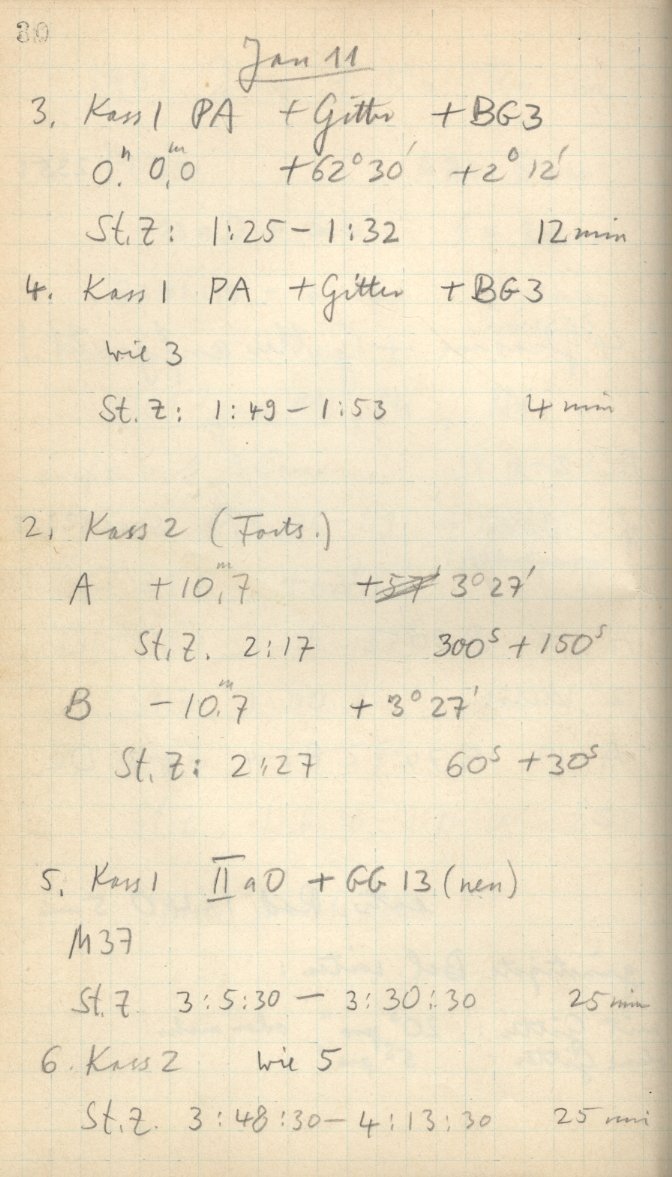 30
Jan 11
3. Kass 1 PA + Gitter + BG3
0.ʰ 0,ᵐ0 +62°30′ +2°12′
St.Z: 1:25 – 1:32 12 min
4. Kass 1 PA + Gitter + BG3
wie 3
St.Z: 1:49 – 1:53 4 min
2. Kass 2 (Forts.)
A +10,ᵐ7 +57′ 3°27′
St.Z. 2:17 300ˢ + 150ˢ
B –10.ᵐ7 +3°27′
St.Z: 2:27 60ˢ + 30ˢ
5. Kass 1 II a O + GG 13 (neu)
M37
St.Z 3:5:30 – 3:30:30 25 min
6. Kass 2 wie 5
St.Z. 3:48:30 – 4:13:30 25 min